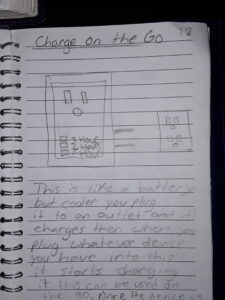 Charge on the Go
3 Hour
2 Hour
1 Hour
This is like a battery
but cooler you plug
it to an outlet and it
charges then when you
plug whatever device
you have into this
it starts charging
it this can be used on
the go, Once the device is